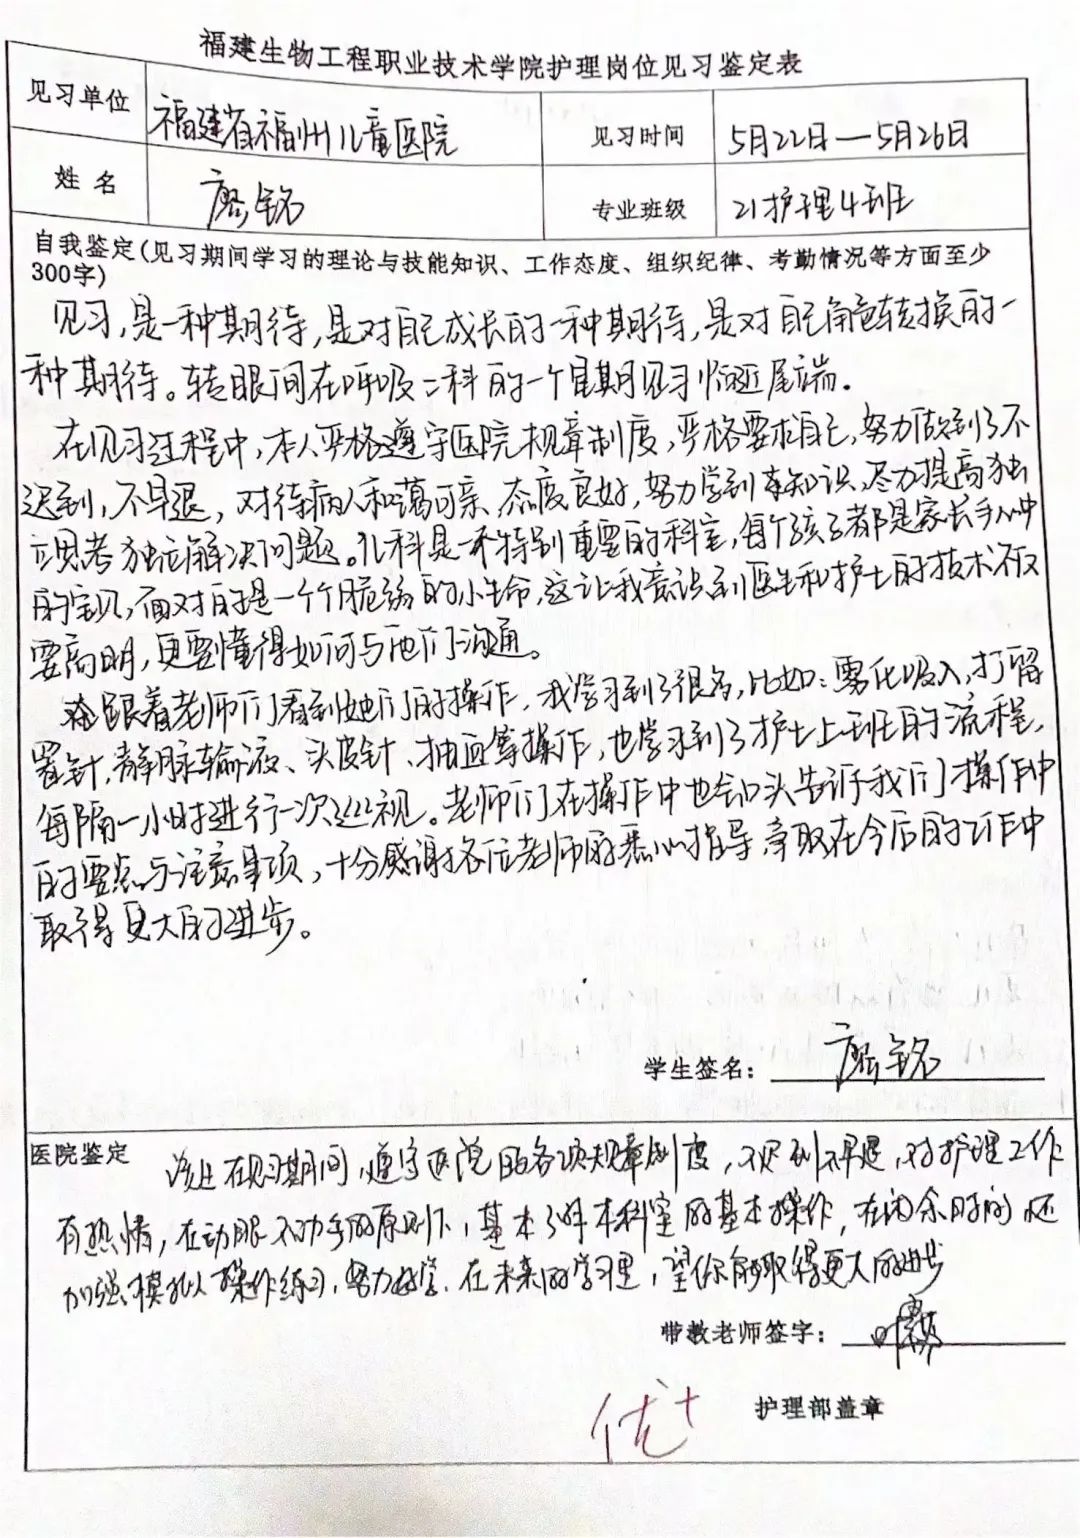 福建生物工程职业技术学院护理岗位见习鉴定表
见习单位 福建省福州儿童医院 见习时间 5月22日—5月26日
姓名 廖铭 专业班级 21护理4班
自我鉴定(见习期间学习的理论与技能知识、工作态度、组织纪律、考勤情况等方面至少
300字)
见习,是一种期待,是对自己成长的一种期待,是对自己角色转换的一
种期待。转眼间在呼吸二科的一个星期见习临近尾端.
在见习过程中,本人严格遵守医院规章制度,严格要求自己,努力做到了不
迟到,不早退,对待病人和蔼可亲,态度良好,努力学到本知识,尽力提高独
立思考独立解决问题。儿科是一个特别重要的科室,每个孩子都是家长手心中
的宝贝,面对的是一个个脆弱的小生命,这让我意识到医生和护士的技术不仅
要高明,更要懂得如何与他们沟通。
跟着老师们看到她们的操作,我学习到了很多,比如:雾化吸入,打留
置针,静脉输液、头皮针、抽血等操作,也学习到了护士上班的流程,
每隔一小时进行一次巡视。老师们在操作中也会口头告诉我们操作中
的要点与注意事项,十分感谢各位老师的悉心指导,争取在今后的工作中
取得更大的进步。
学生签名: 廖铭
医院鉴定 该生在见习期间,遵守医院的各项规章制度,不迟到不早退,对护理工作
有热情,在动眼不动手的原则下,基本了解本科室的基本操作,在闲余时间还
加强模拟操作练习,努力好学.在未来的学习里,望你能取得更大的进步
带教老师签字:
优+ 护理部盖章